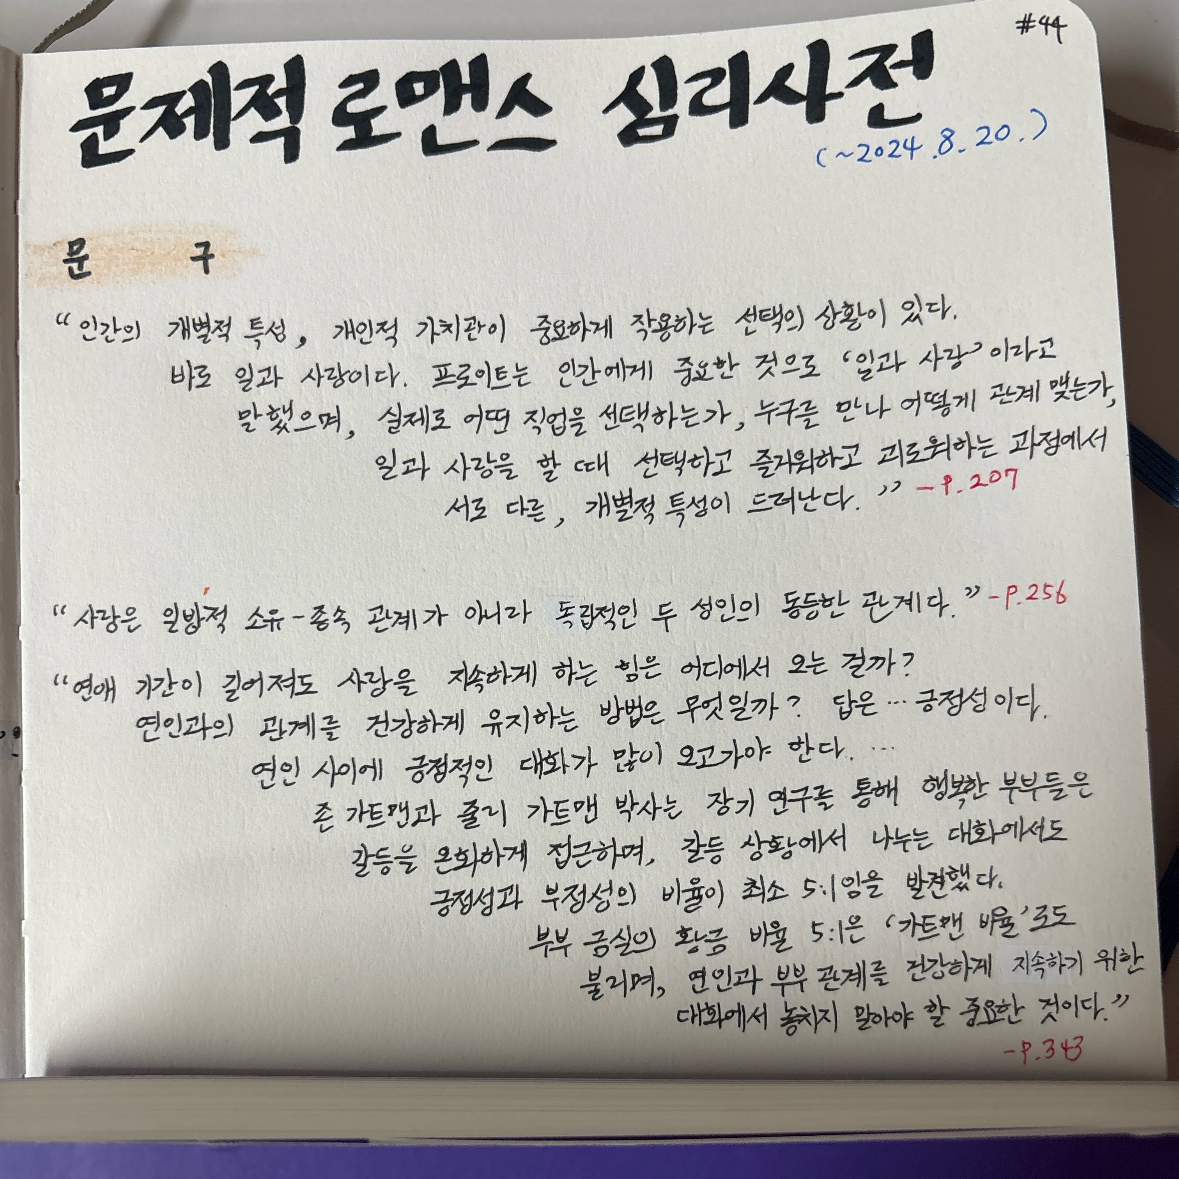 #44
문제적 로맨스 심리사전
(~2024.8.20.)
문 구
"인간의 개별적 특성, 개인적 가치관이 중요하게 작용하는 선택의 상황이 있다.
바로 일과 사랑이다. 프로이트는 인간에게 중요한 것으로 '일과 사랑'이라고
말했으며, 실제로 어떤 직업을 선택하는가, 누구를 만나 어떻게 관계 맺는가,
일과 사랑을 할 때 선택하고 즐거워하고 괴로워하는 과정에서
서로 다른, 개별적 특성이 드러난다." -P.207
"사랑은 일방적 소유-종속 관계가 아니라 독립적인 두 성인의 동등한 관계다." -P.256
"연애 기간이 길어져도 사랑을 지속하게 하는 힘은 어디에서 오는 걸까?
연인과의 관계를 건강하게 유지하는 방법은 무엇일까? 답은… 긍정성이다.
연인 사이에 긍정적인 대화가 많이 오고가야 한다. …
존 가트맨과 쥴리 가트맨 박사는 장기 연구를 통해 행복한 부부들은
갈등을 온화하게 접근하며, 갈등 상황에서 나누는 대화에서도
긍정성과 부정성의 비율이 최소 5:1임을 발견했다.
부부 금실의 황금 비율 5:1은 '가트맨 비율'로도
불리며, 연인과 부부 관계를 건강하게 지속하기 위한
대화에서 놓치지 말아야 할 중요한 것이다."
-P.343